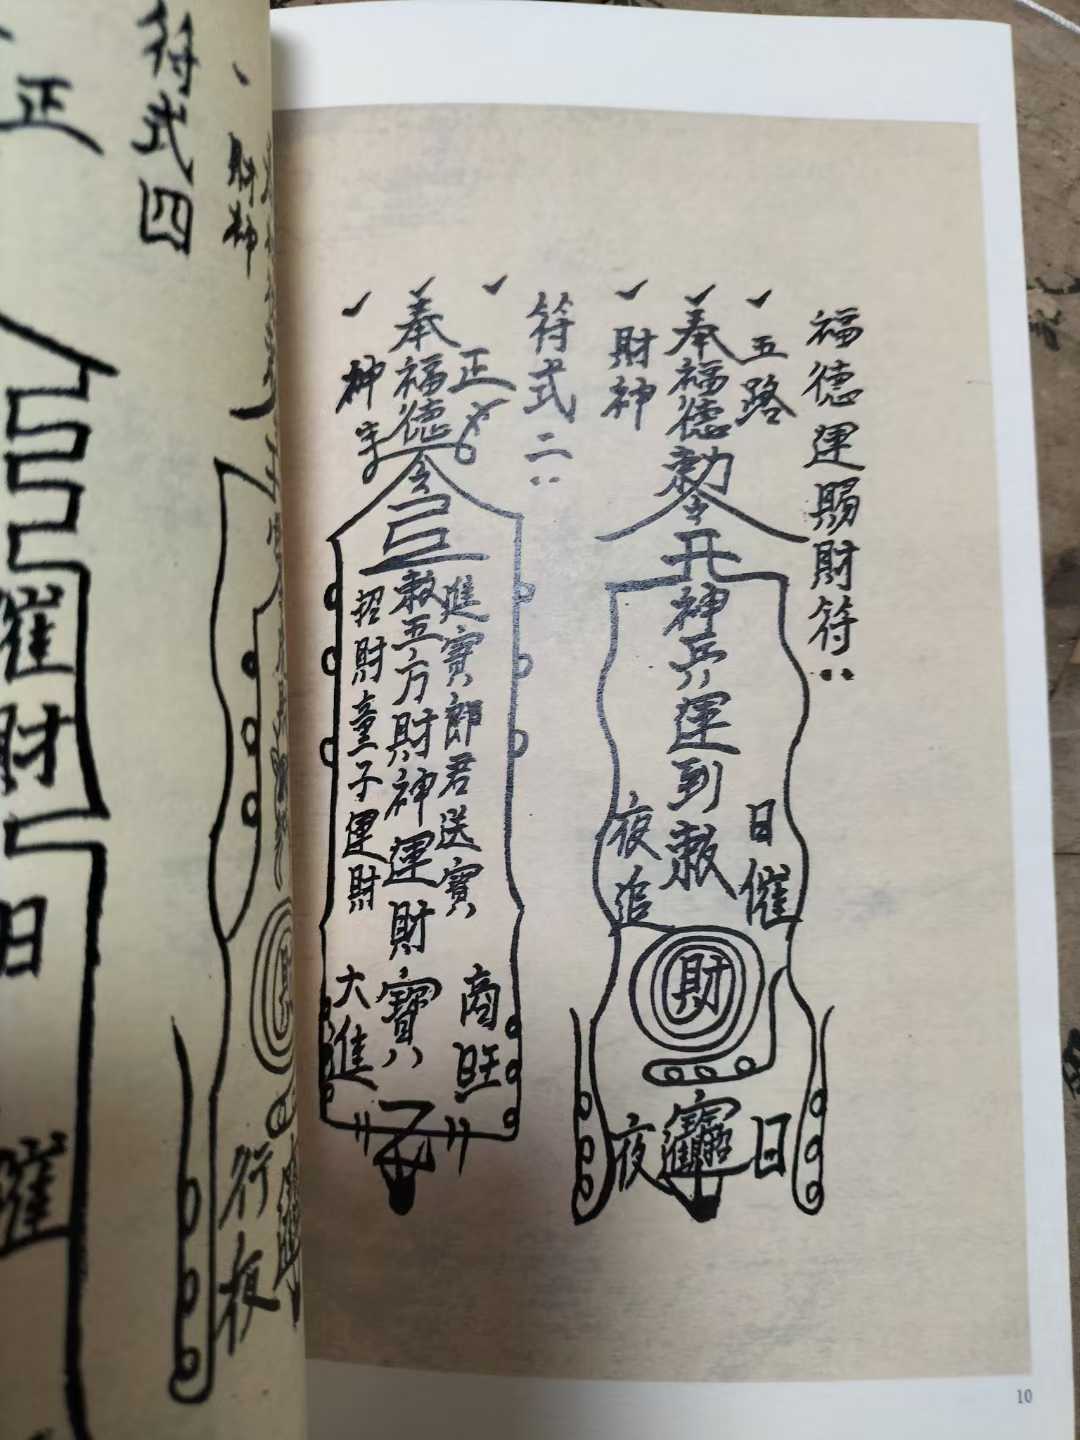 福德運賜財符
五路
奉福德勅令
財神
神兵運到敕
日催
夜追
財
日
夜
符式二
正
奉福德
神
令
進寶郎君送寶
敕五方財神運財寶
招財童子運財
商旺
大進
符式四
正
財神
催財
日
催
財
行